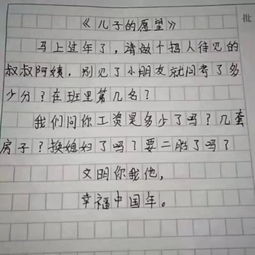 批
《儿子的愿望》
马上过年了，请做个招人待见的
叔叔阿姨，别见了小朋友就问考了多
少分？在班里第几名？
我们问你工资是多少了吗？几套
房子？换媳妇了吗？要二胎了吗？
文明你我他，
幸福中国年。